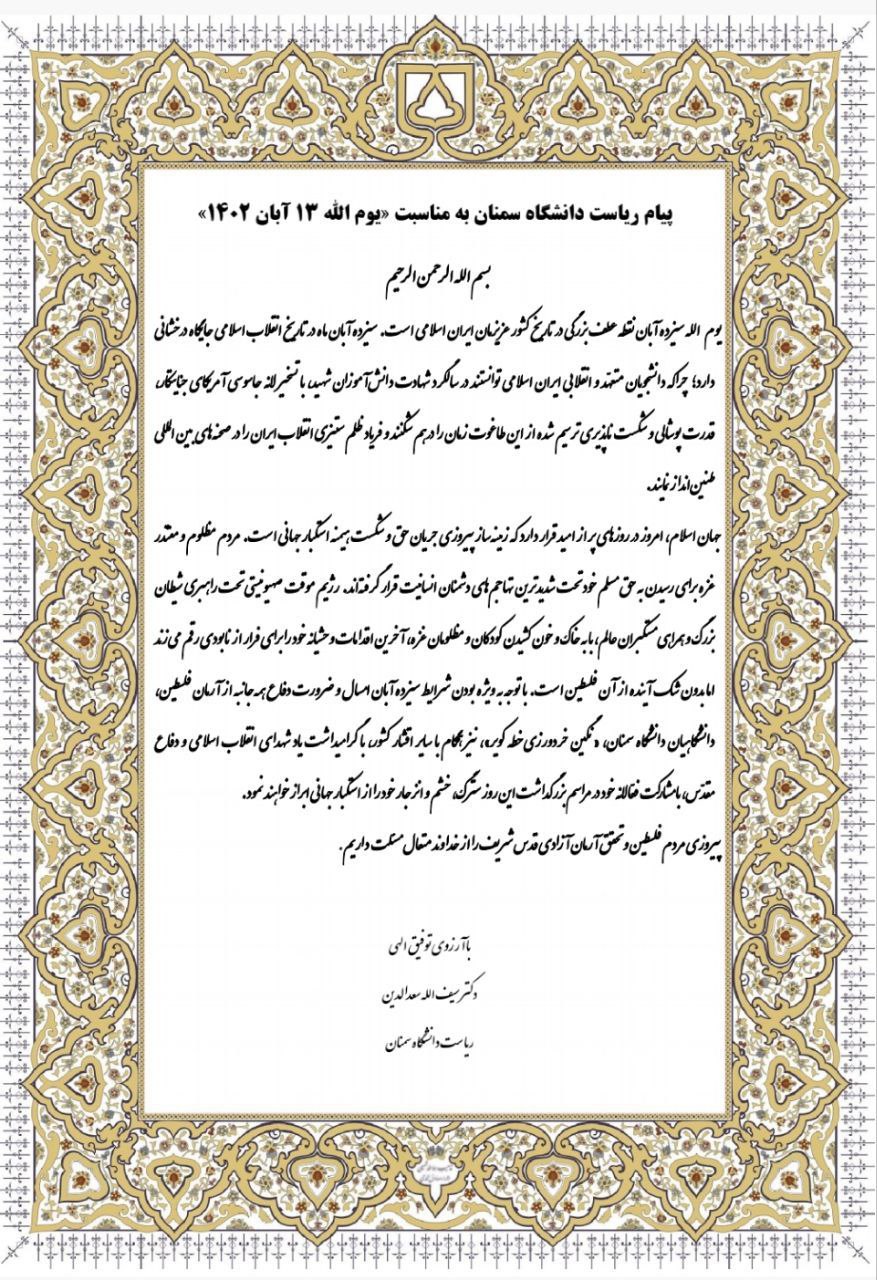 پیام ریاست دانشگاه سمنان به مناسبت «یوم الله ۱۳ آبان ۱۴۰۲»
بسم الله الرحمن الرحیم
یوم الله سیزده آبان نقطه عطف بزرگی در تاریخ کشور عزیزمان ایران اسلامی است. سیزده آبان ماه در تاریخ انقلاب اسلامی جایگاه درخشانی
دارد؛ چراکه دانشجویان متعهد و انقلابی ایران اسلامی توانستند در سالگرد شهادت دانش‌آموزان شهید، با تسخیر لانه جاسوسی آمریکای جنایتکار،
قدرت پوشالی و شکست ناپذیری ترسیم شده از این طاغوت زمان را درهم شکنند و فریاد ظلم ستیزی انقلاب ایران را در صحنه‌های بین المللی
طنین‌انداز نمایند.
جهان اسلام، امروز در روزهای پر از امید قرار دارد که زمینه‌ساز پیروزی جریان حق و شکست هیمنه استکبار جهانی است. مردم مظلوم و مقتدر
غزه برای رسیدن به حق مسلم خود تحت شدیدترین تهاجم‌های دشمنان انسانیت قرار گرفته‌اند. رژیم موقت صهیونیستی تحت راهبری شیطان
بزرگ و همراهی مستکبران عالم، با به خاک و خون کشیدن کودکان و مظلومان غزه، آخرین اقدامات وحشیانه خود را برای فرار از نابودی رقم می‌زند
اما بدون شک آینده از آن فلسطین است. با توجه به ویژه بودن شرایط سیزده آبان امسال و ضرورت دفاع همه جانبه از آرمان فلسطین،
دانشگاهیان دانشگاه سمنان، «نگین خردورزی خطه کویر»، نیز همگام با سایر اقشار کشور، با گرامیداشت یاد شهدای انقلاب اسلامی و دفاع
مقدس، با مشارکت فعالانه خود در مراسم بزرگداشت این روز سترگ، خشم و انزجار خود را از استکبار جهانی ابراز خواهند نمود.
پیروزی مردم فلسطین و تحقق آرمان آزادی قدس شریف را از خداوند متعال مسئلت داریم.
با آرزوی توفیق الهی
دکتر سیف الله سعدالدین
ریاست دانشگاه سمنان